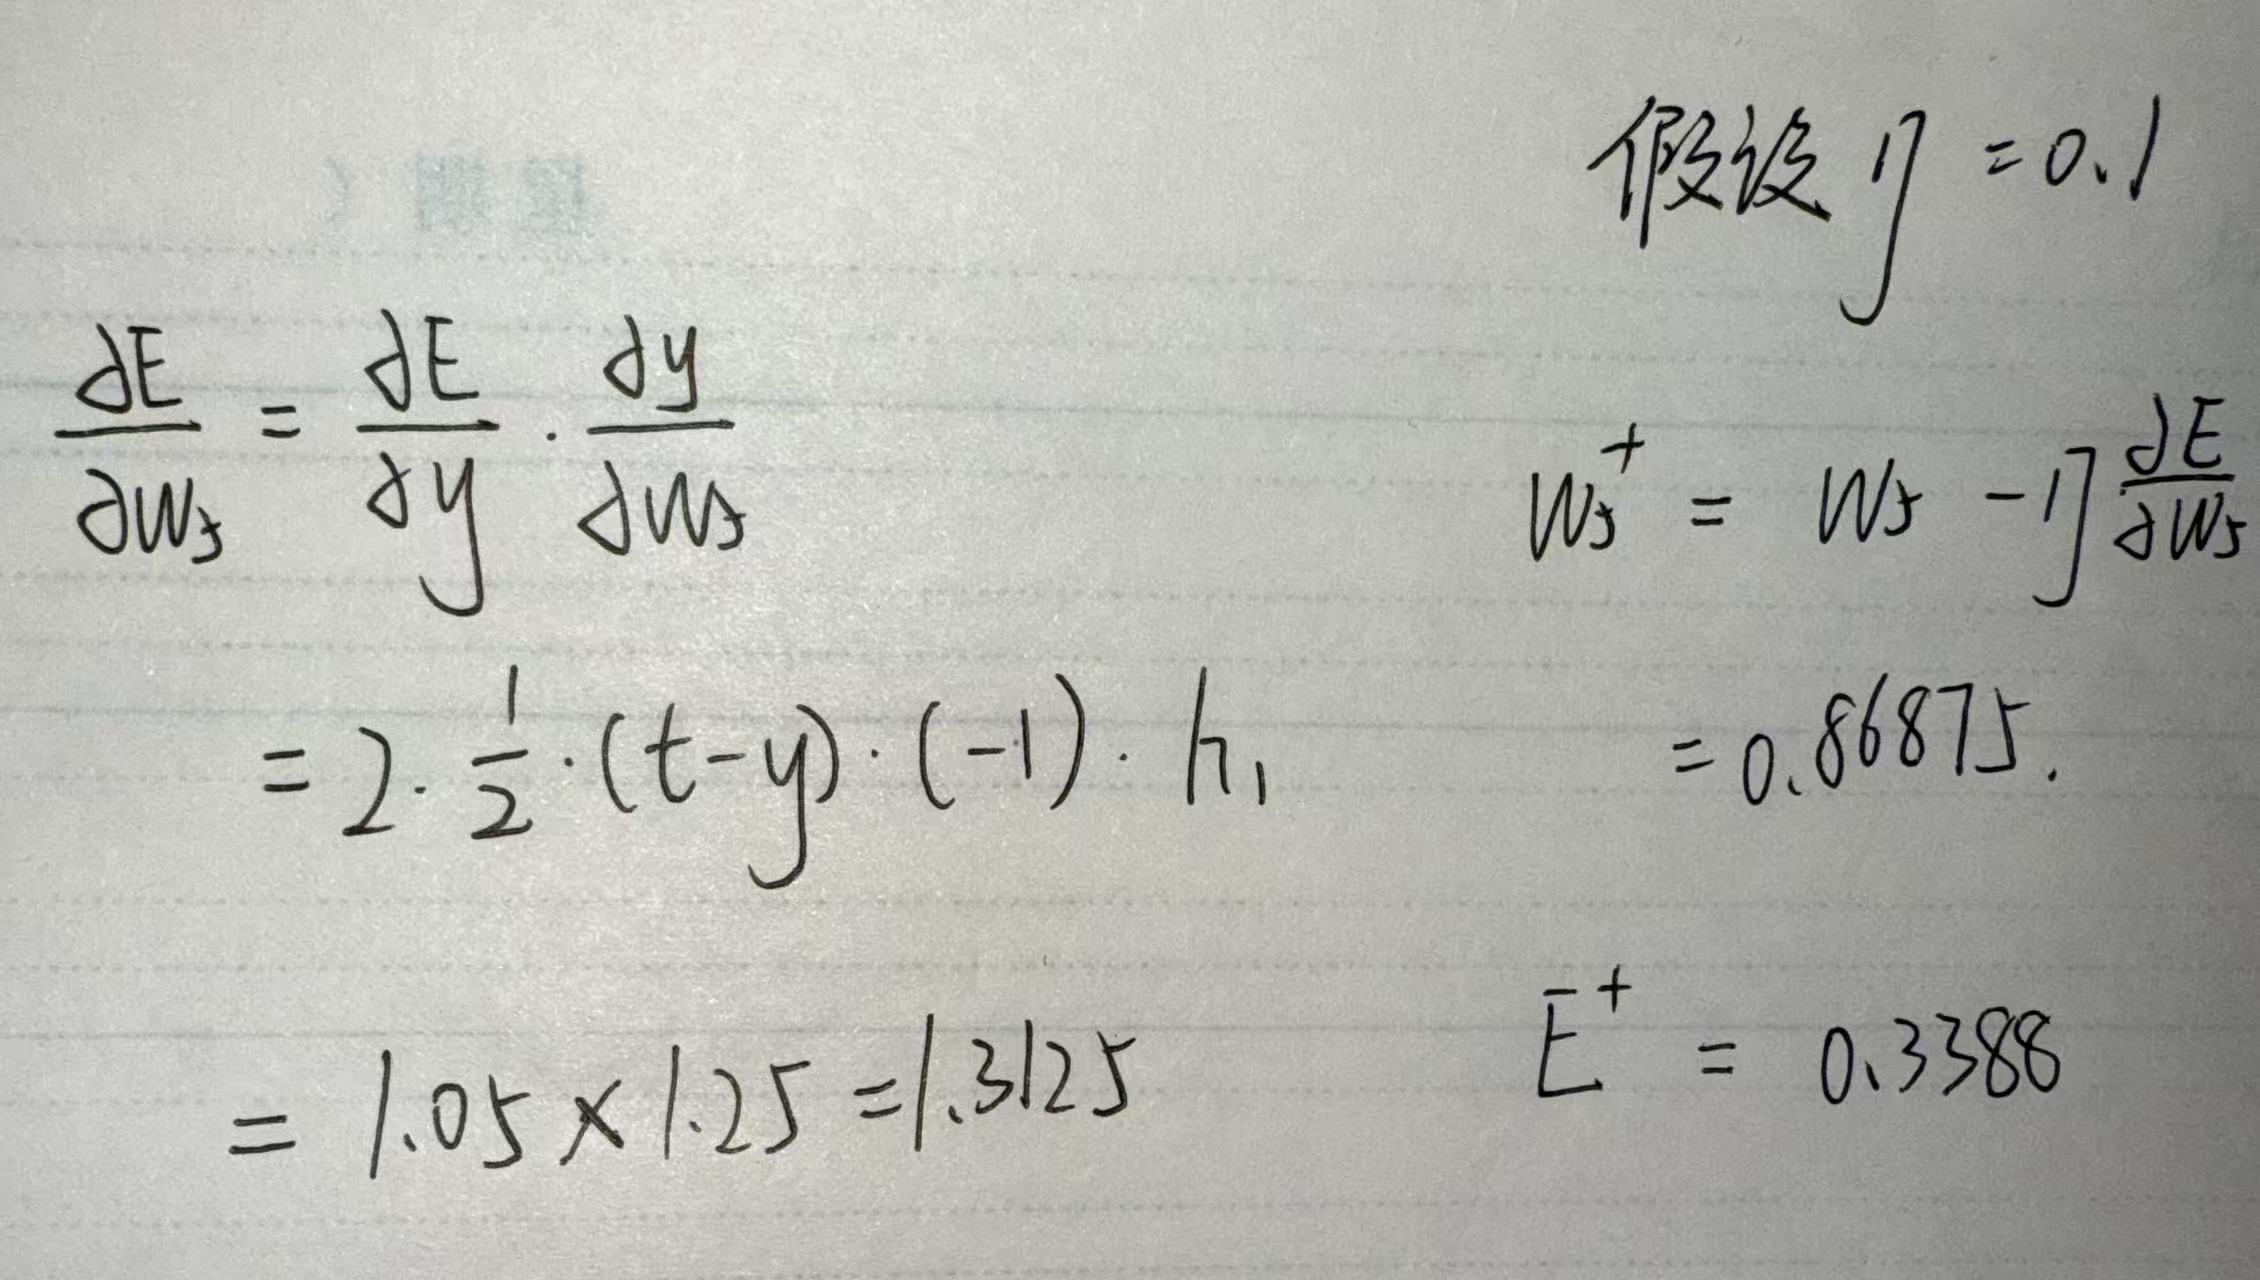 假设 η = 0.1
∂E/∂W₅ = ∂E/∂y · ∂y/∂W₅
= 2 · 1/2 · (t-y) · (-1) · h₁
= 1.05 × 1.25 = 1.3125
W₅⁺ = W₅ - η ∂E/∂W₅
= 0.86875.
E⁺ = 0.3388